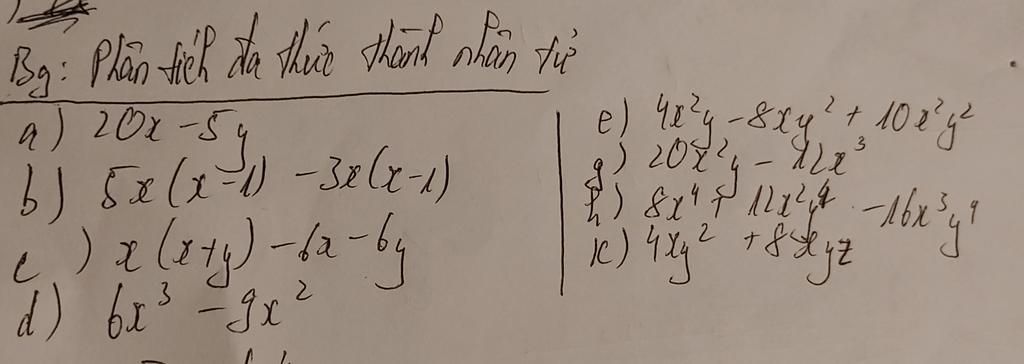 Bg: Phân tích đa thức thành nhân tử
a) 20x - 5y
b) 5x(x-1) - 3x(x-1)
c) x(x+y) - 6x - 6y
d) 6x³ - 9x²
e) 4x²y - 8xy² + 10x²y²
g) 20x²y - 12x³
h) 8x⁴ + 12x²y⁴ - 16x³y⁴
k) 4xy² + 8xyz